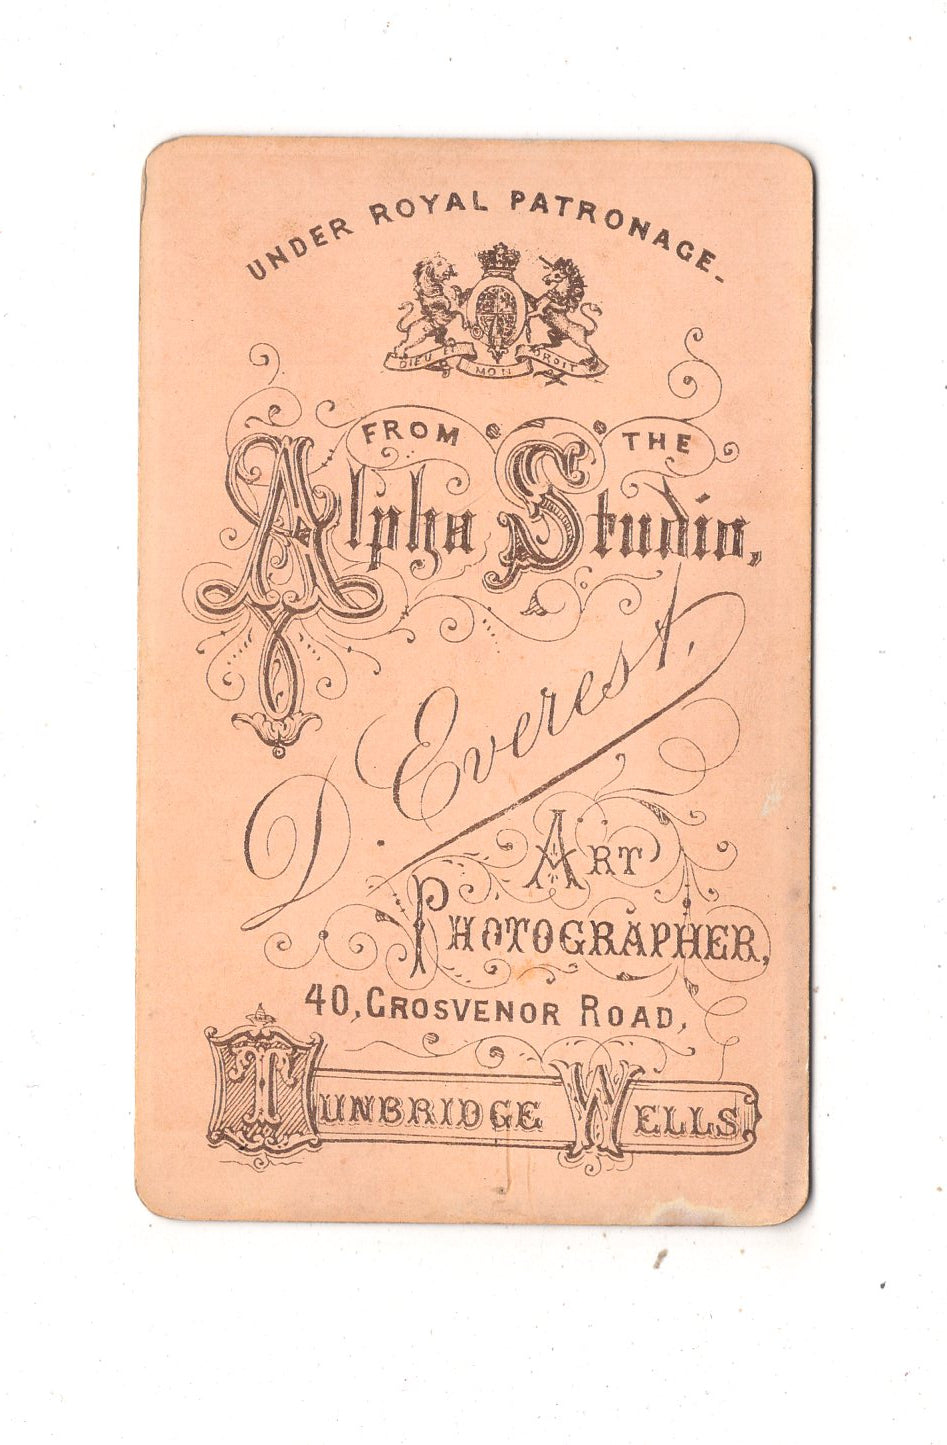 UNDER ROYAL PATRONAGE.
DIEU ET MON DROIT
FROM THE
Alpha Studio,
D. Everest,
ART
PHOTOGRAPHER,
40, GROSVENOR ROAD,
TUNBRIDGE WELLS